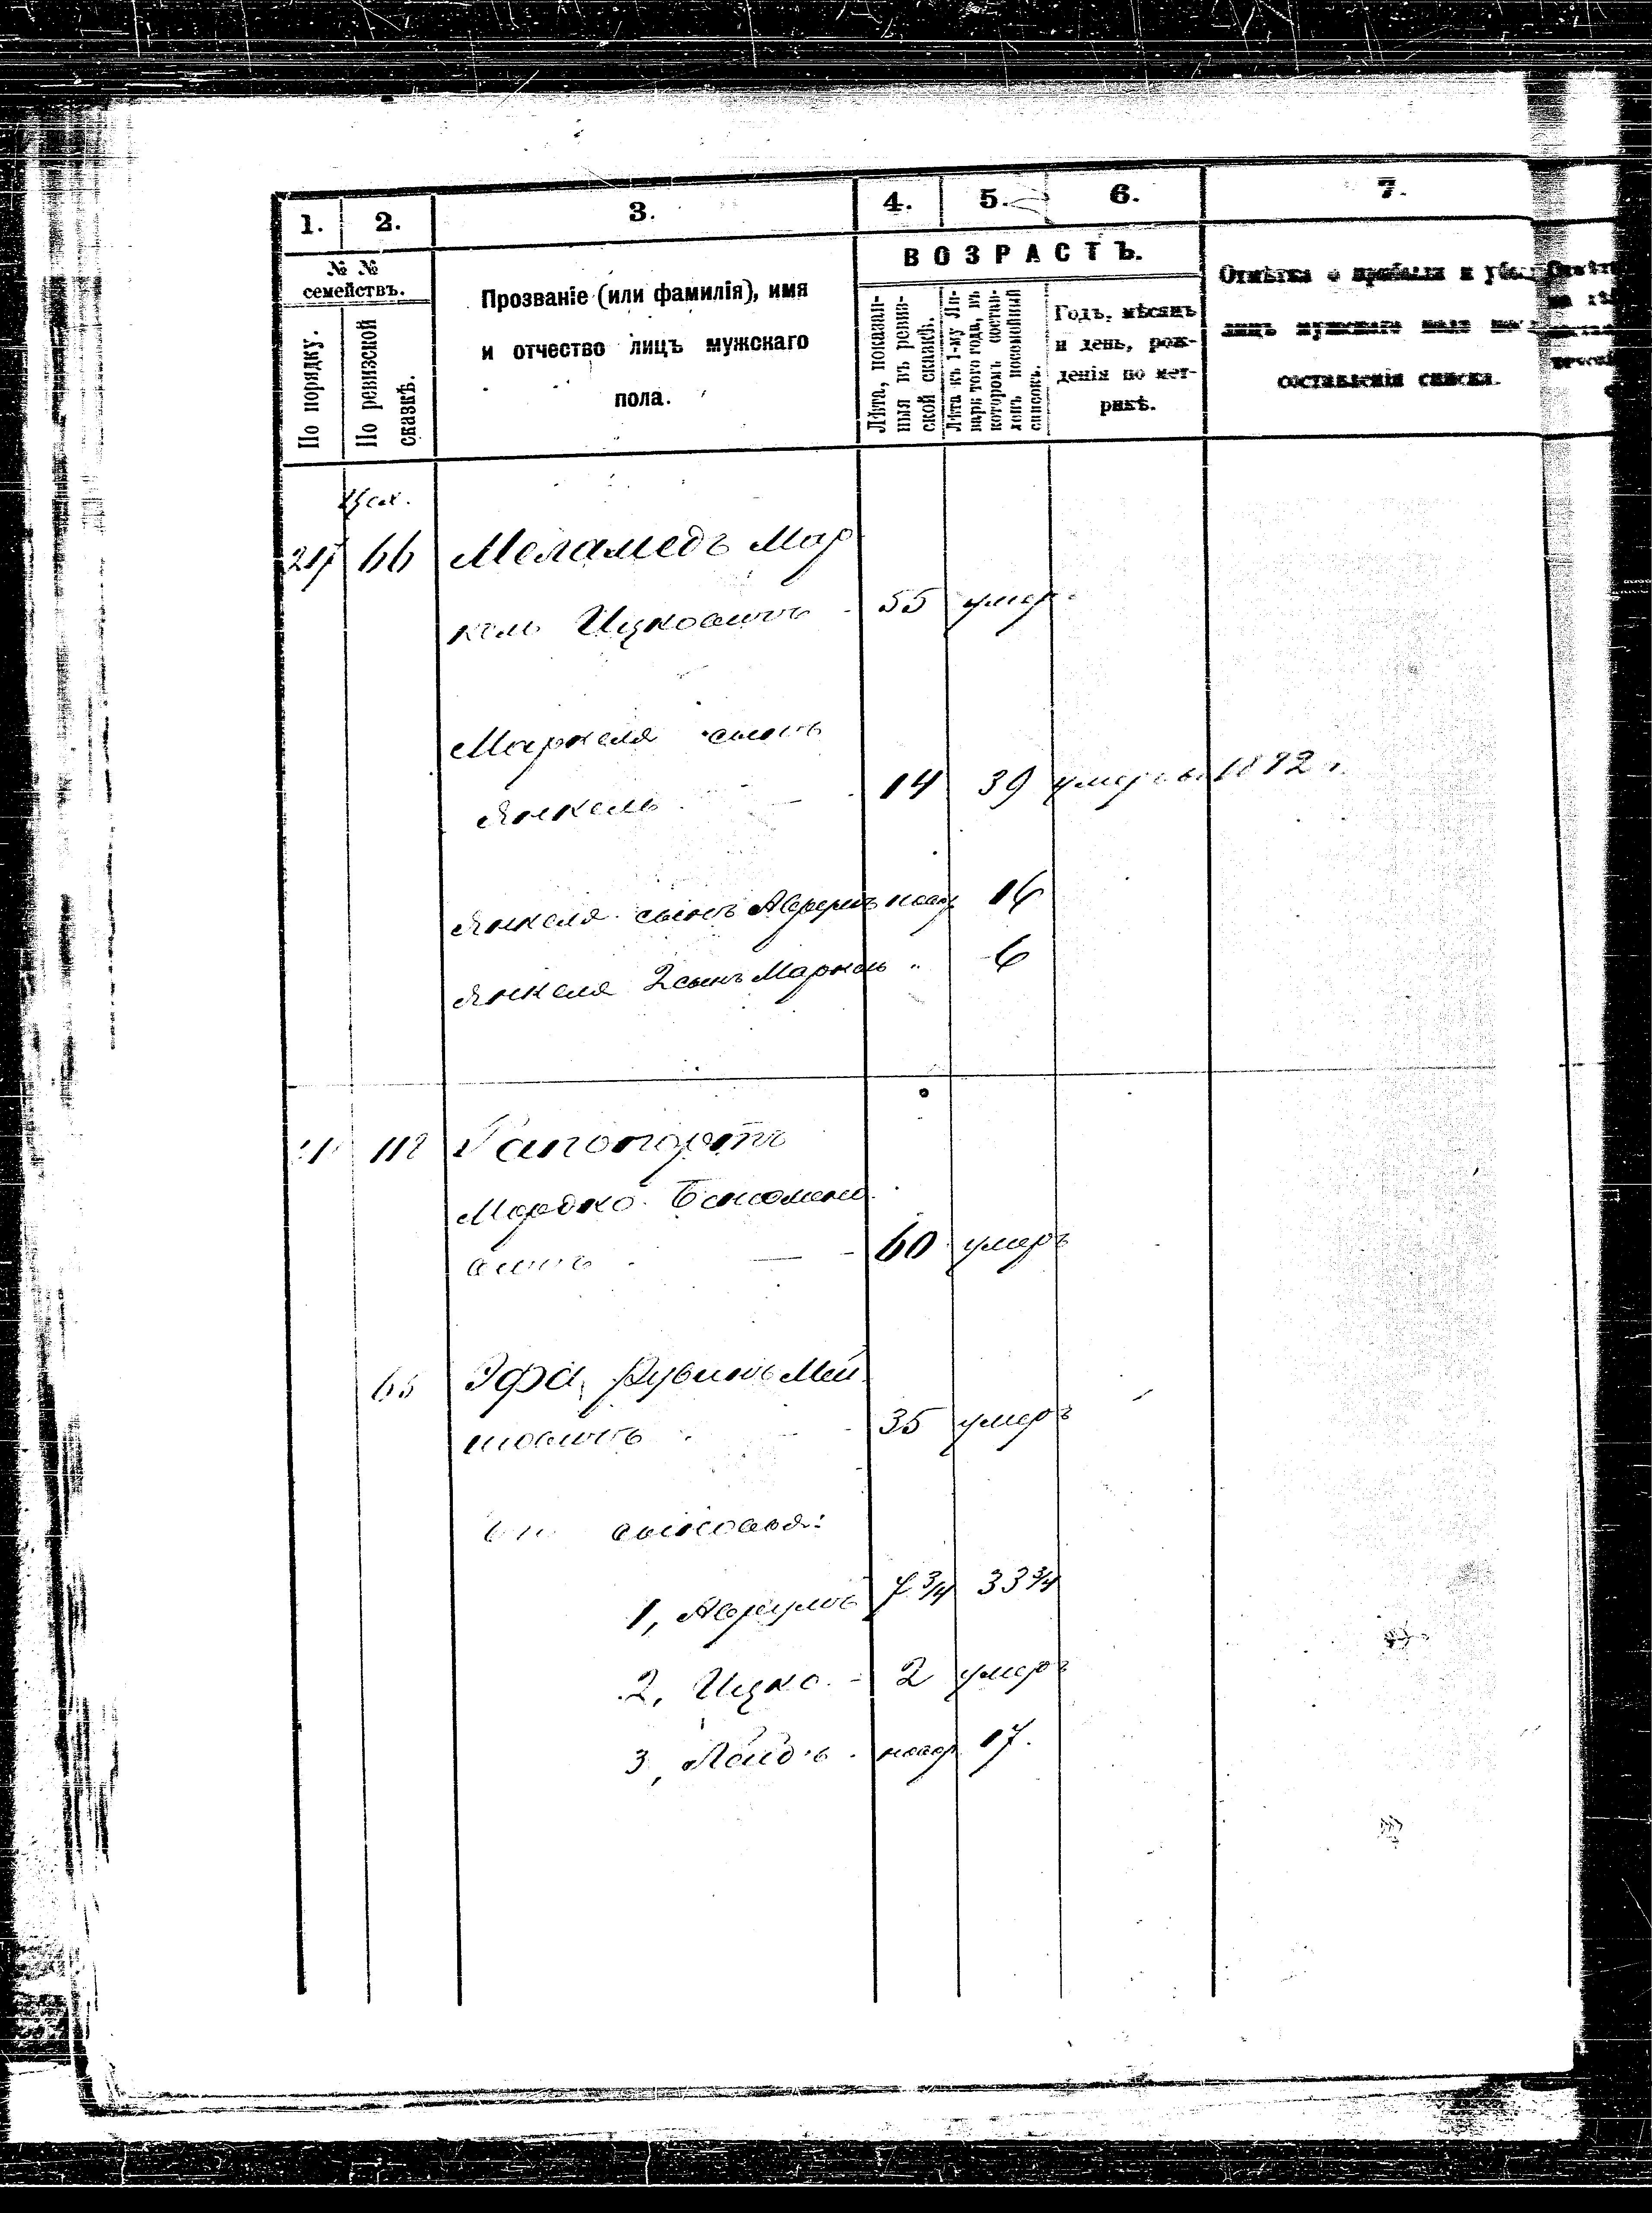 1. 2. 3. 4. 5. 6. 7.
№ № семействъ.
По порядку.
По ревизской сказкѣ.
Прозваніе (или фамилія), имя
и отчество лицъ мужскаго
пола.
ВОЗРАСТЪ.
Лѣта, показан-
ныя въ ревиз-
ской сказкѣ.
Лѣта къ 1-му Ян-
варя того года, въ
которомъ состав-
ленъ посемейный
списокъ.
Годъ, мѣсяцъ
и день, рож-
денія по мет-
рикѣ.
Отмѣтка о прибыли и убыли
лицъ мужскаго пола
составленія списка.
66 Меламедъ Мар
кель Ицковичъ - 55 умеръ
Маркеля сынъ
Янкель - 14 39 умеръ въ 1892 г.
Янкеля сынъ новор 16
Янкеля 2 сынъ Маркель " 6
Рапопортъ
Мордко Бенсомино
вичъ - 60 умеръ
65 Эфа, Рувинъ
шовичъ - 35 умеръ
сыновья:
1, Аврумъ 7 3/4 33 3/4
2, Ицко - 2 умеръ
3, новор 17.